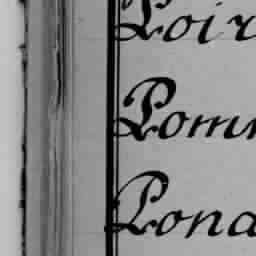 Poir
Pomm
Pona